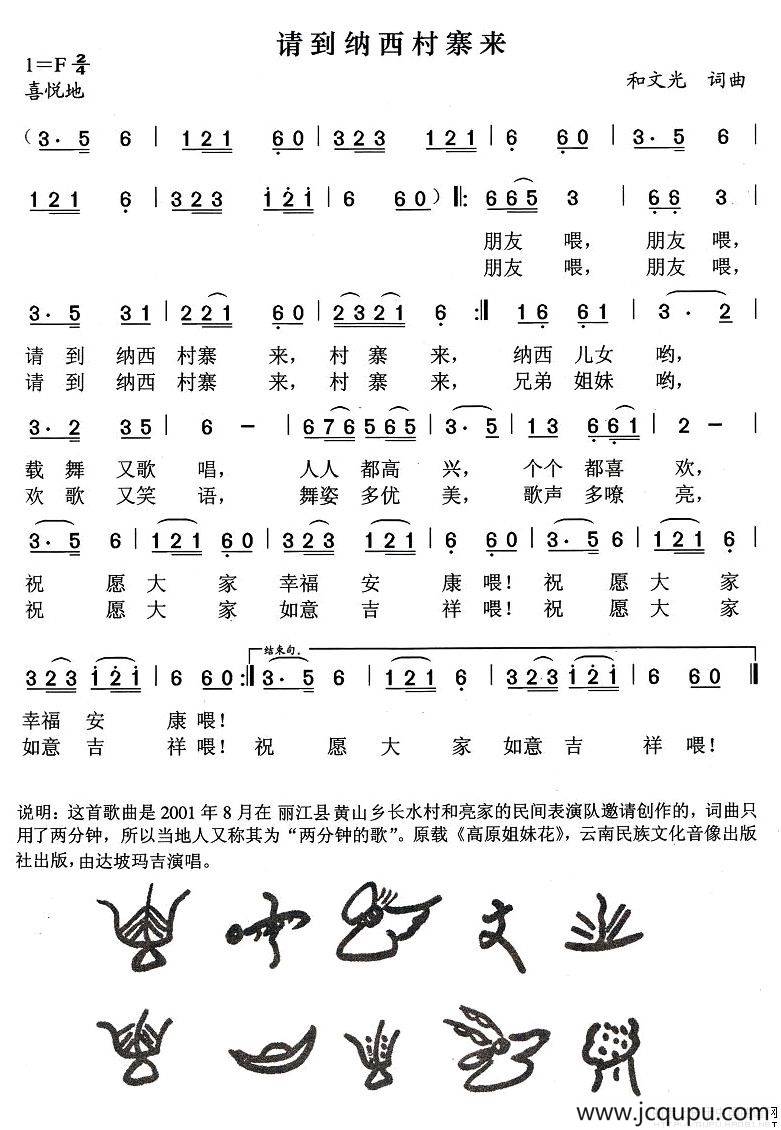 请到纳西村寨来
1＝F 2/4
喜悦地
和文光 词曲
（3· 5 6 | 1 2 1 6 0 | 3 2 3 1 2 1 | 6 6 0 |
1 2 1 6 | 3 2 3 1 2 1 | 6 6 0）‖: 6 6 5 3 | 6 6 3 |
朋友 喂， 朋友 喂，
朋友 喂， 朋友 喂，
3· 5 3 1 | 2 2 1 6 0 | 2 3 2 1 6 :‖ 1 6 6 1 | 3· 2 |
请 到 纳西 村寨 来， 村 寨 来， 纳西 儿女 哟，
请 到 纳西 村寨 来， 村 寨 来， 兄弟 姐妹 哟，
3· 2 3 5 | 6 － | 6 7 6 5 6 5 | 3· 5 | 1 3 6 6 1 | 2 － |
载 舞 又歌 唱， 人人 都高 兴， 个个 都喜 欢，
欢 歌 又笑 语， 舞姿 多优 美， 歌声 多嘹 亮，
3· 5 6 | 1 2 1 6 0 | 3 2 3 1 2 1 | 6 6 0 | 3· 5 6 | 1 2 1 6 |
祝 愿 大 家 幸福 安 康 喂！ 祝 愿 大 家
祝 愿 大 家 如意 吉 祥 喂！ 祝 愿 大 家
结束句。
3 2 3 1 2 1 | 6 6 0 :‖ 3· 5 6 | 1 2 1 6 | 3 2 3 1 2 1 | 6 6 0 ‖
幸福 安 康 喂！
如意 吉 祥 喂！ 祝 愿 大 家 如意 吉 祥 喂！
说明：这首歌曲是 2001 年 8 月在 丽江县 黄山乡长水村和亮家的民间表演队邀请创作的，词曲只
用了两分钟，所以当地人又称其为“两分钟的歌”。原载《高原姐妹花》，云南民族文化音像出版
社出版，由达坡玛吉演唱。
www.jcqupu.com